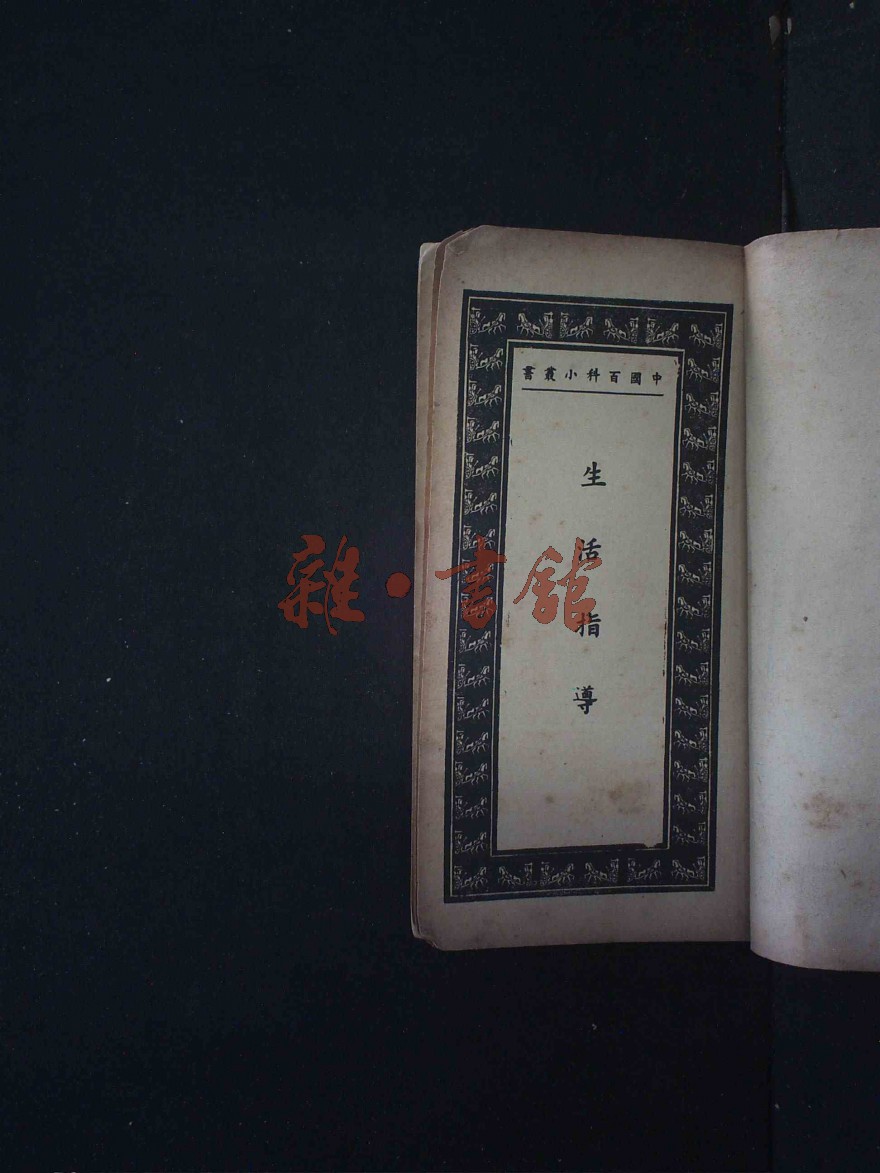 中國百科小叢書
生活指導
雜·書館